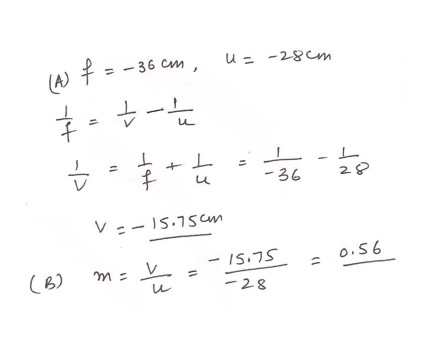 (A) f = -36 cm, u = -28cm
1/f = 1/v - 1/u
1/v = 1/f + 1/u = 1/-36 - 1/28
v = -15.75cm
(B) m = v/u = -15.75/-28 = 0.56